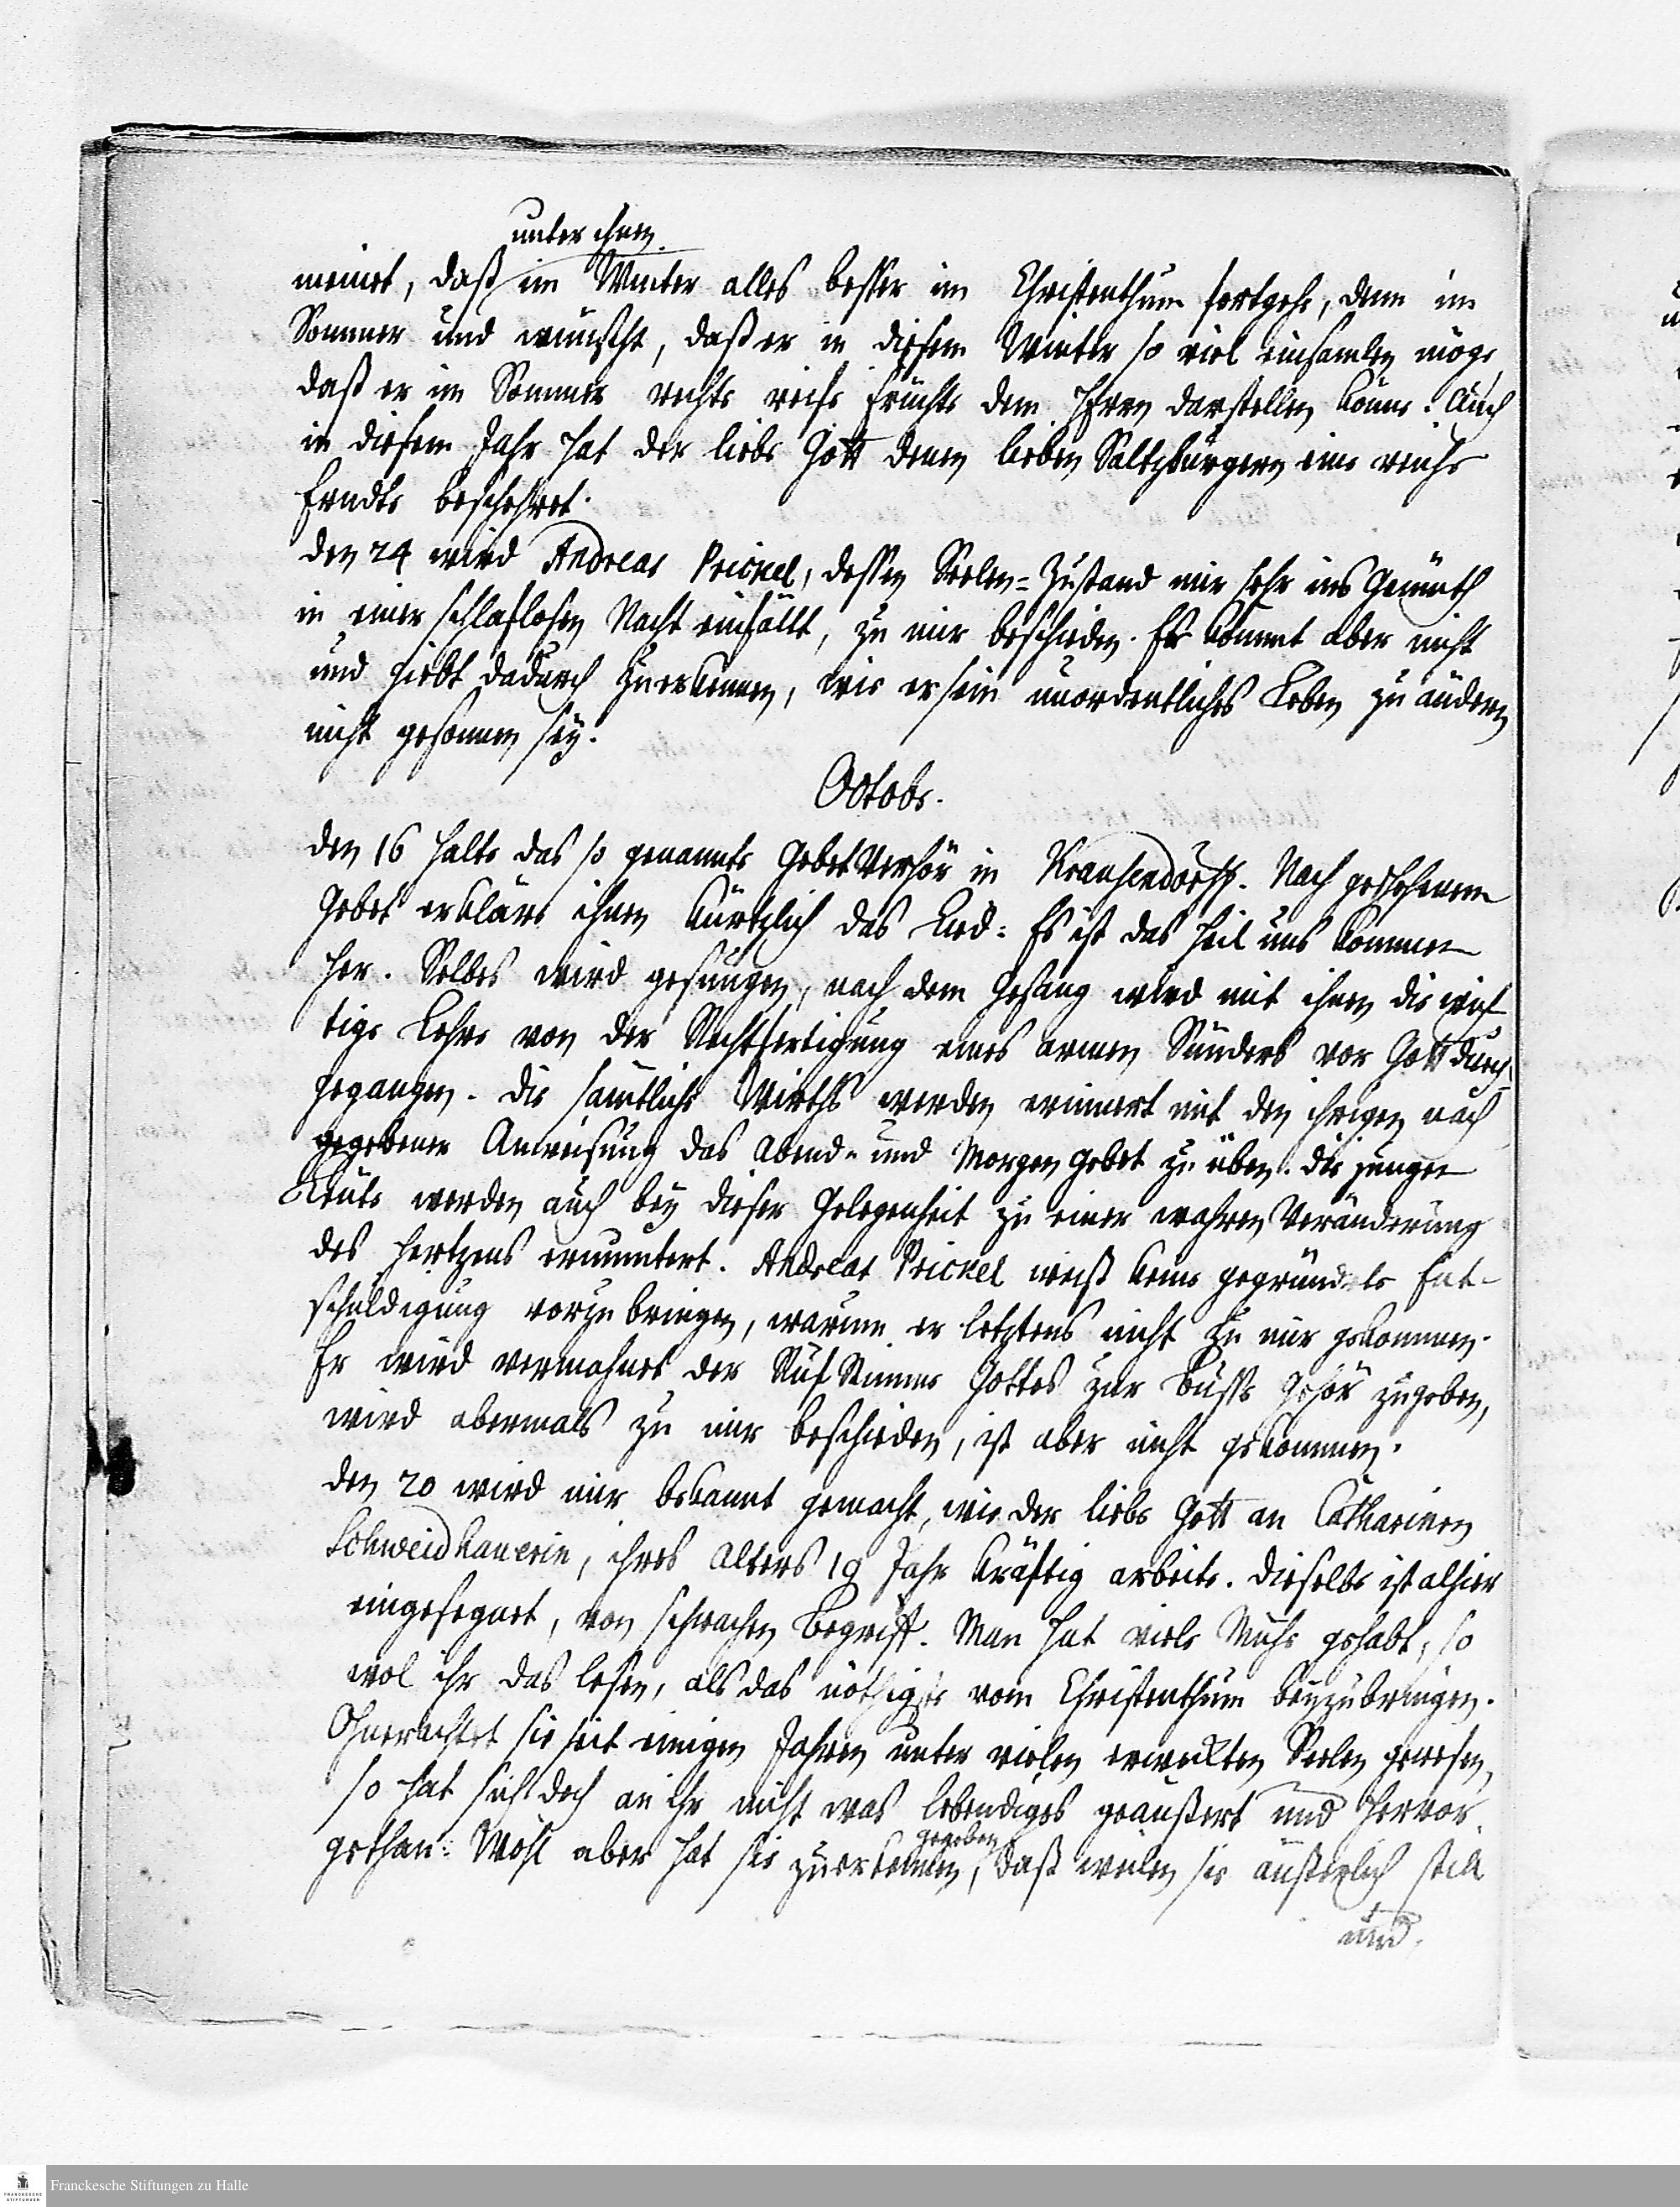 unter ihnen
meinet, daß im Winter alles besser im Christenthum fortgehe, denn im
Sommer und wünscht, daß er in diesem Winter so viel einsamlen möge,
daß er im Sommer rechte reife Früchte dem Herrn darstellen könne. Auch
in diesem Jahr hat der liebe Gott denen lieben Saltzburgern eine reiche
Erndte bescheheret.
den 24 wird Andreas Prickel, dessen Seelen-Zustand mir sehr ins Gemüth
in einer schlaflosen Nacht einfällt, zu mir beschieden. Er kommt aber nicht
und giebt dadurch zuerkennen, wie er sein unordentliches Leben zu ändern
nicht gesonnen sey.
Octobr.
den 16 halte das so genannte Gebet Verhör in Krausendorff. Nach geschehenem
Gebet erkläre ihnen kürtzlich das Lied: Es ist das Heil uns kommen
her. Selbes wird gesungen, nach dem Gesang wird mit ihnen die wich
tige Lehre von der Rechtfertigung eines armen Sünders vor Gott durch-
gegangen. Die sämtliche Wirthe werden erinnert mit den ihrigen nach
gegebener Anweisung das Abend- und Morgen Gebet zu üben. die junge
Leute werden auch bey dieser Gelegenheit zu einer wahren Veränderung
des Hertzens ermuntert. Andreas Prickel weiß keine gegründete Ent-
schuldigung vorzubringen, warum er letztens nicht zu mir gekommen.
Er wird vermahnet der Ruf Stimme Gottes zur Busse Gehör zugeben,
wird abermals zu mir beschieden, ist aber nicht gekommen.
den 20 wird mir bekannt gemacht, wie der liebe Gott an Catharinen
Schweidhauerin, ihres Alters 19 Jahr kräftig arbeite. Dieselbe ist alhier
eingesegnet, von schwachen Begriff. Man hat viele Mühe gehabt, so
wol ihr das lesen, als das nöthigste vom Christenthum beyzubringen.
Ohnerachtet sie seit einigen Jahren unter vielen erweckten Seelen gewesen,
so hat sich doch an ihr nicht was lebendiges geäußert und hervor
gethan: Wohl aber hat sie zuerkennen gegeben, daß weilen sie äußerlich still
und
Franckesche Stiftungen zu Halle